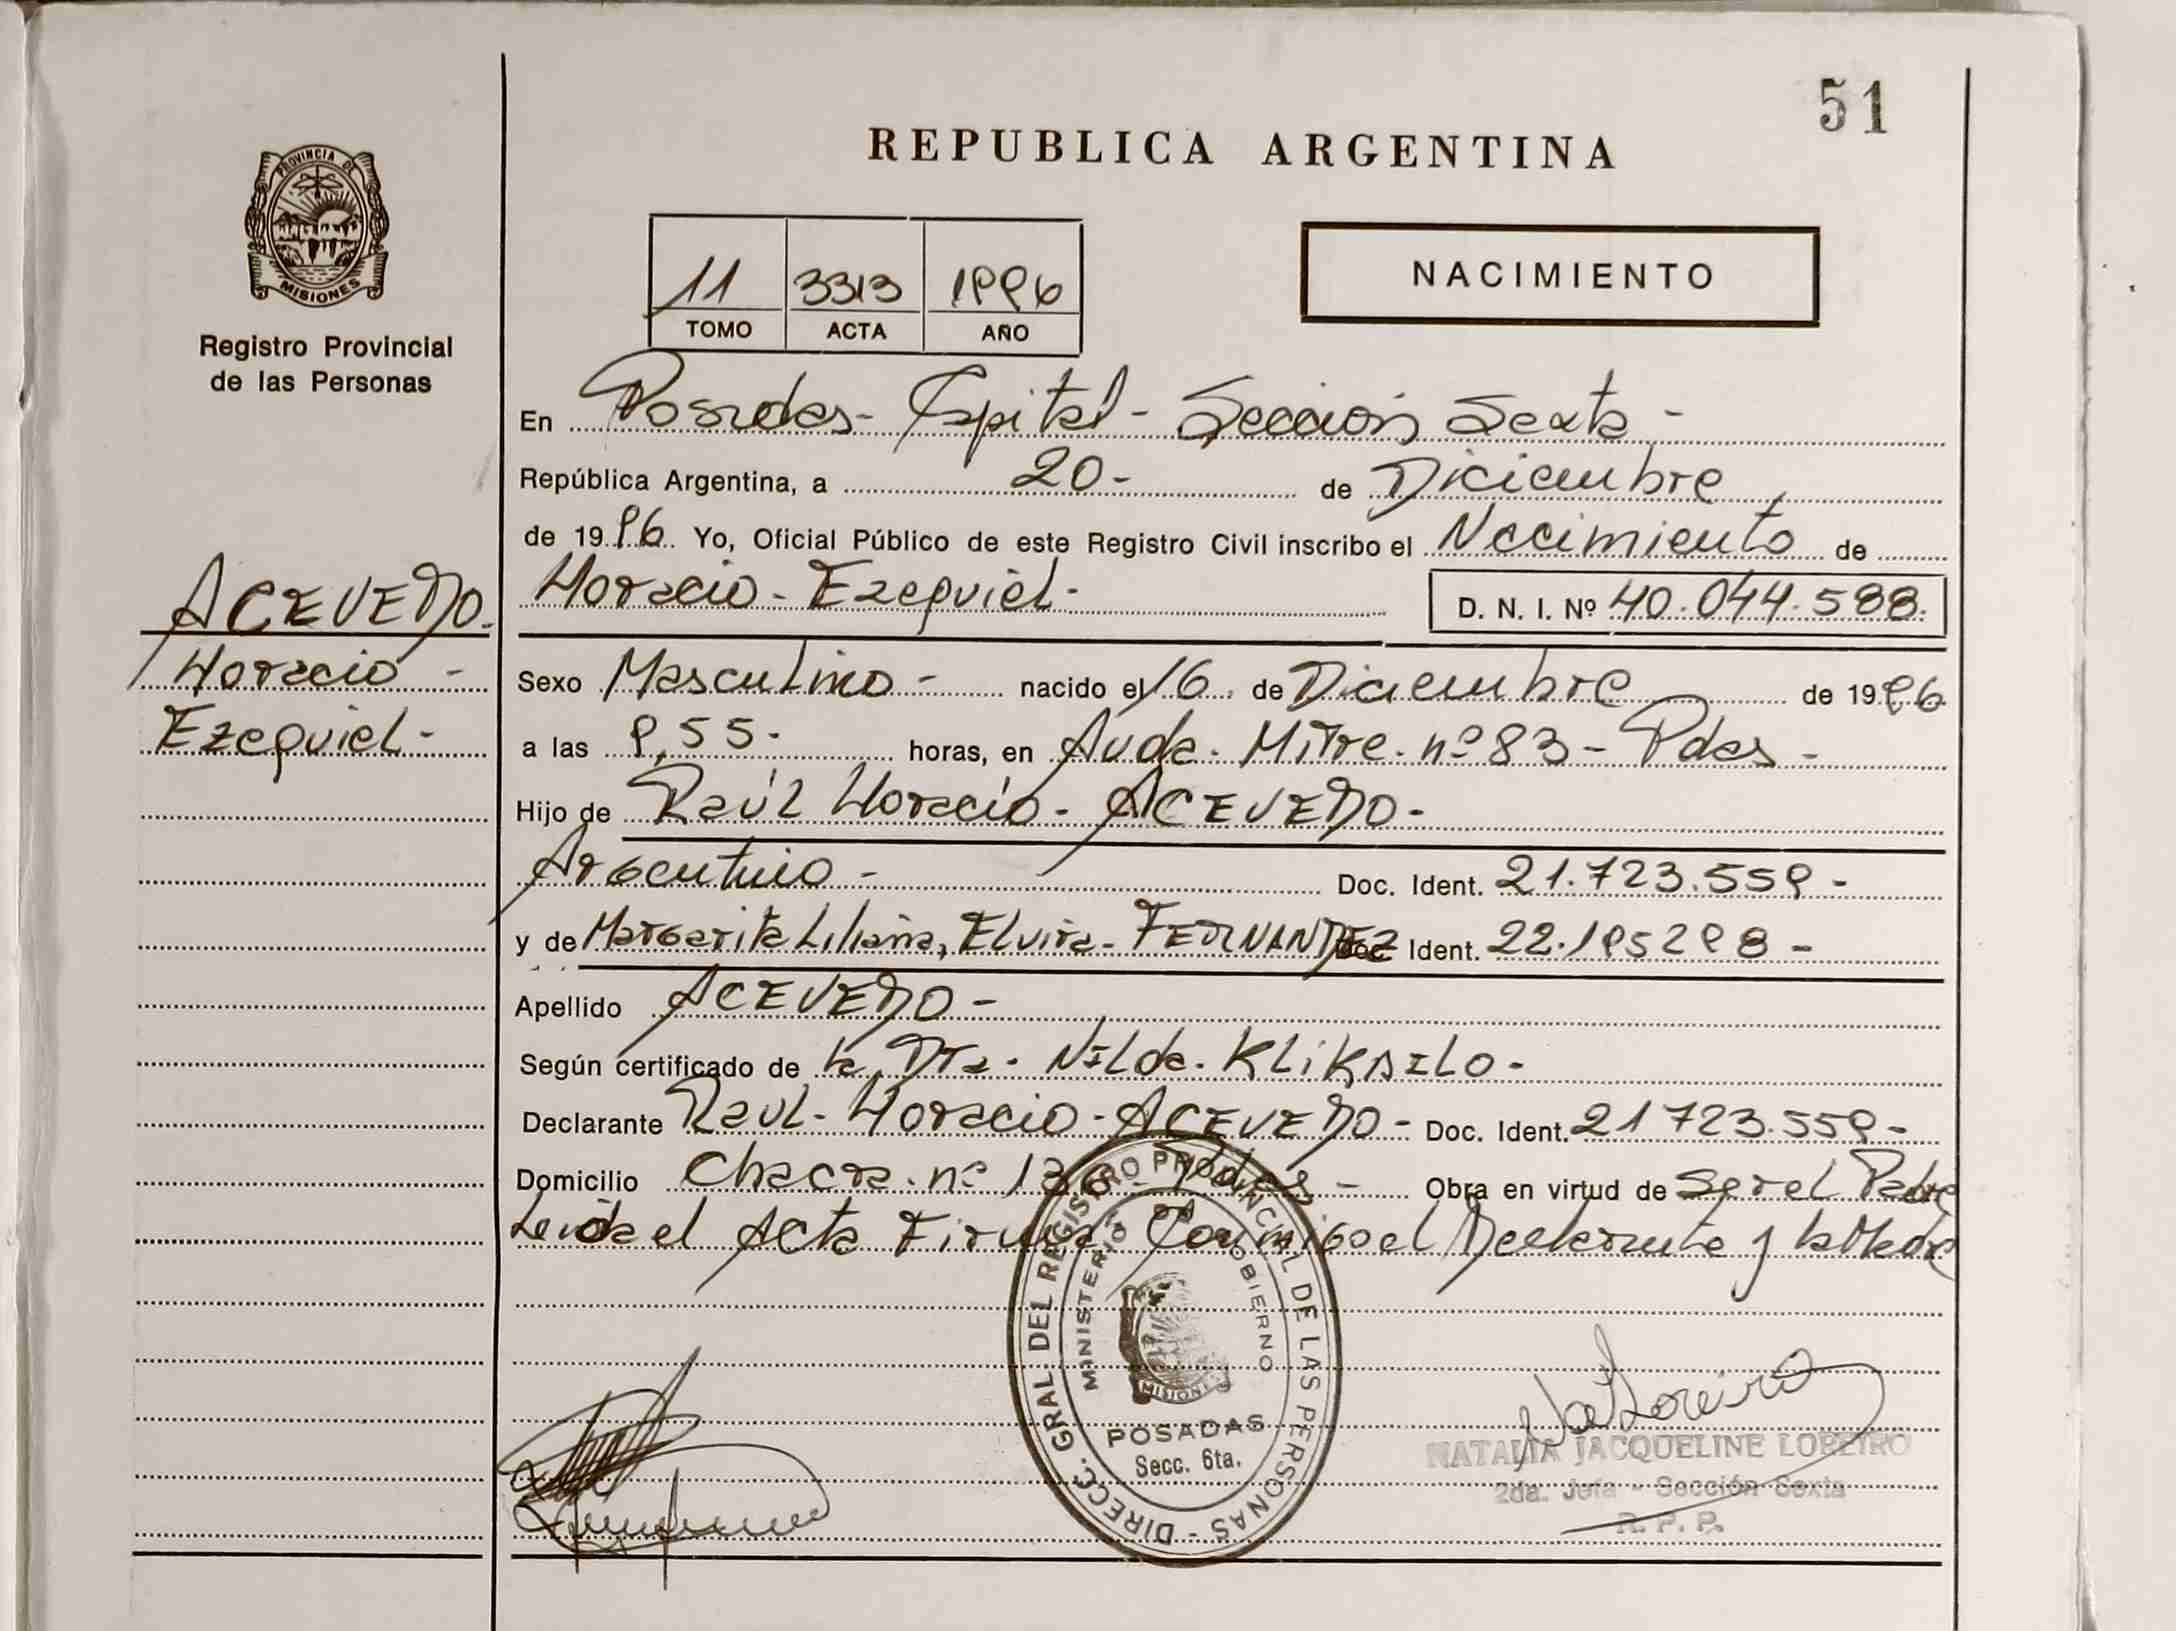 51
REPUBLICA ARGENTINA
PROVINCIA DE
MISIONES
Registro Provincial
de las Personas
11 3313 1996
TOMO ACTA AÑO
NACIMIENTO
En Posadas - Capital - Sección Sexta -
República Argentina, a 20 - de Diciembre
de 1996 Yo, Oficial Público de este Registro Civil inscribo el Nacimiento de
Horacio - Ezequiel - D. N. I. Nº 40.044.588.
ACEVEDO.
Horacio -
Ezequiel -
Sexo Masculino - nacido el 16 de Diciembre de 1996
a las 9,55 - horas, en Avda. Mitre. nº 83 - Pdas -
Hijo de Raúl Horacio - ACEVEDO -
Argentino - Doc. Ident. 21.723.559 -
y de Margarita Liliana, Elvira - FERNANDEZ Doc Ident. 22.195298 -
Apellido ACEVEDO -
Según certificado de la Dra. Nilda.
Declarante Raul - Horacio - ACEVEDO - Doc. Ident. 21723.559 -
Domicilio Chacra. nº 136 - Pdas - Obra en virtud de ser el Padre
Leída el Acta Firma Conmigo el Declarante y la Madre
DIRECC. GRAL. DEL REGISTRO PROVINCIAL DE LAS PERSONAS -
MINISTERIO GOBIERNO
MISIONES
POSADAS
Secc. 6ta.
NATALIA JACQUELINE LOREIRO
2da. Jefa - Sección Sexta
R. P. P.